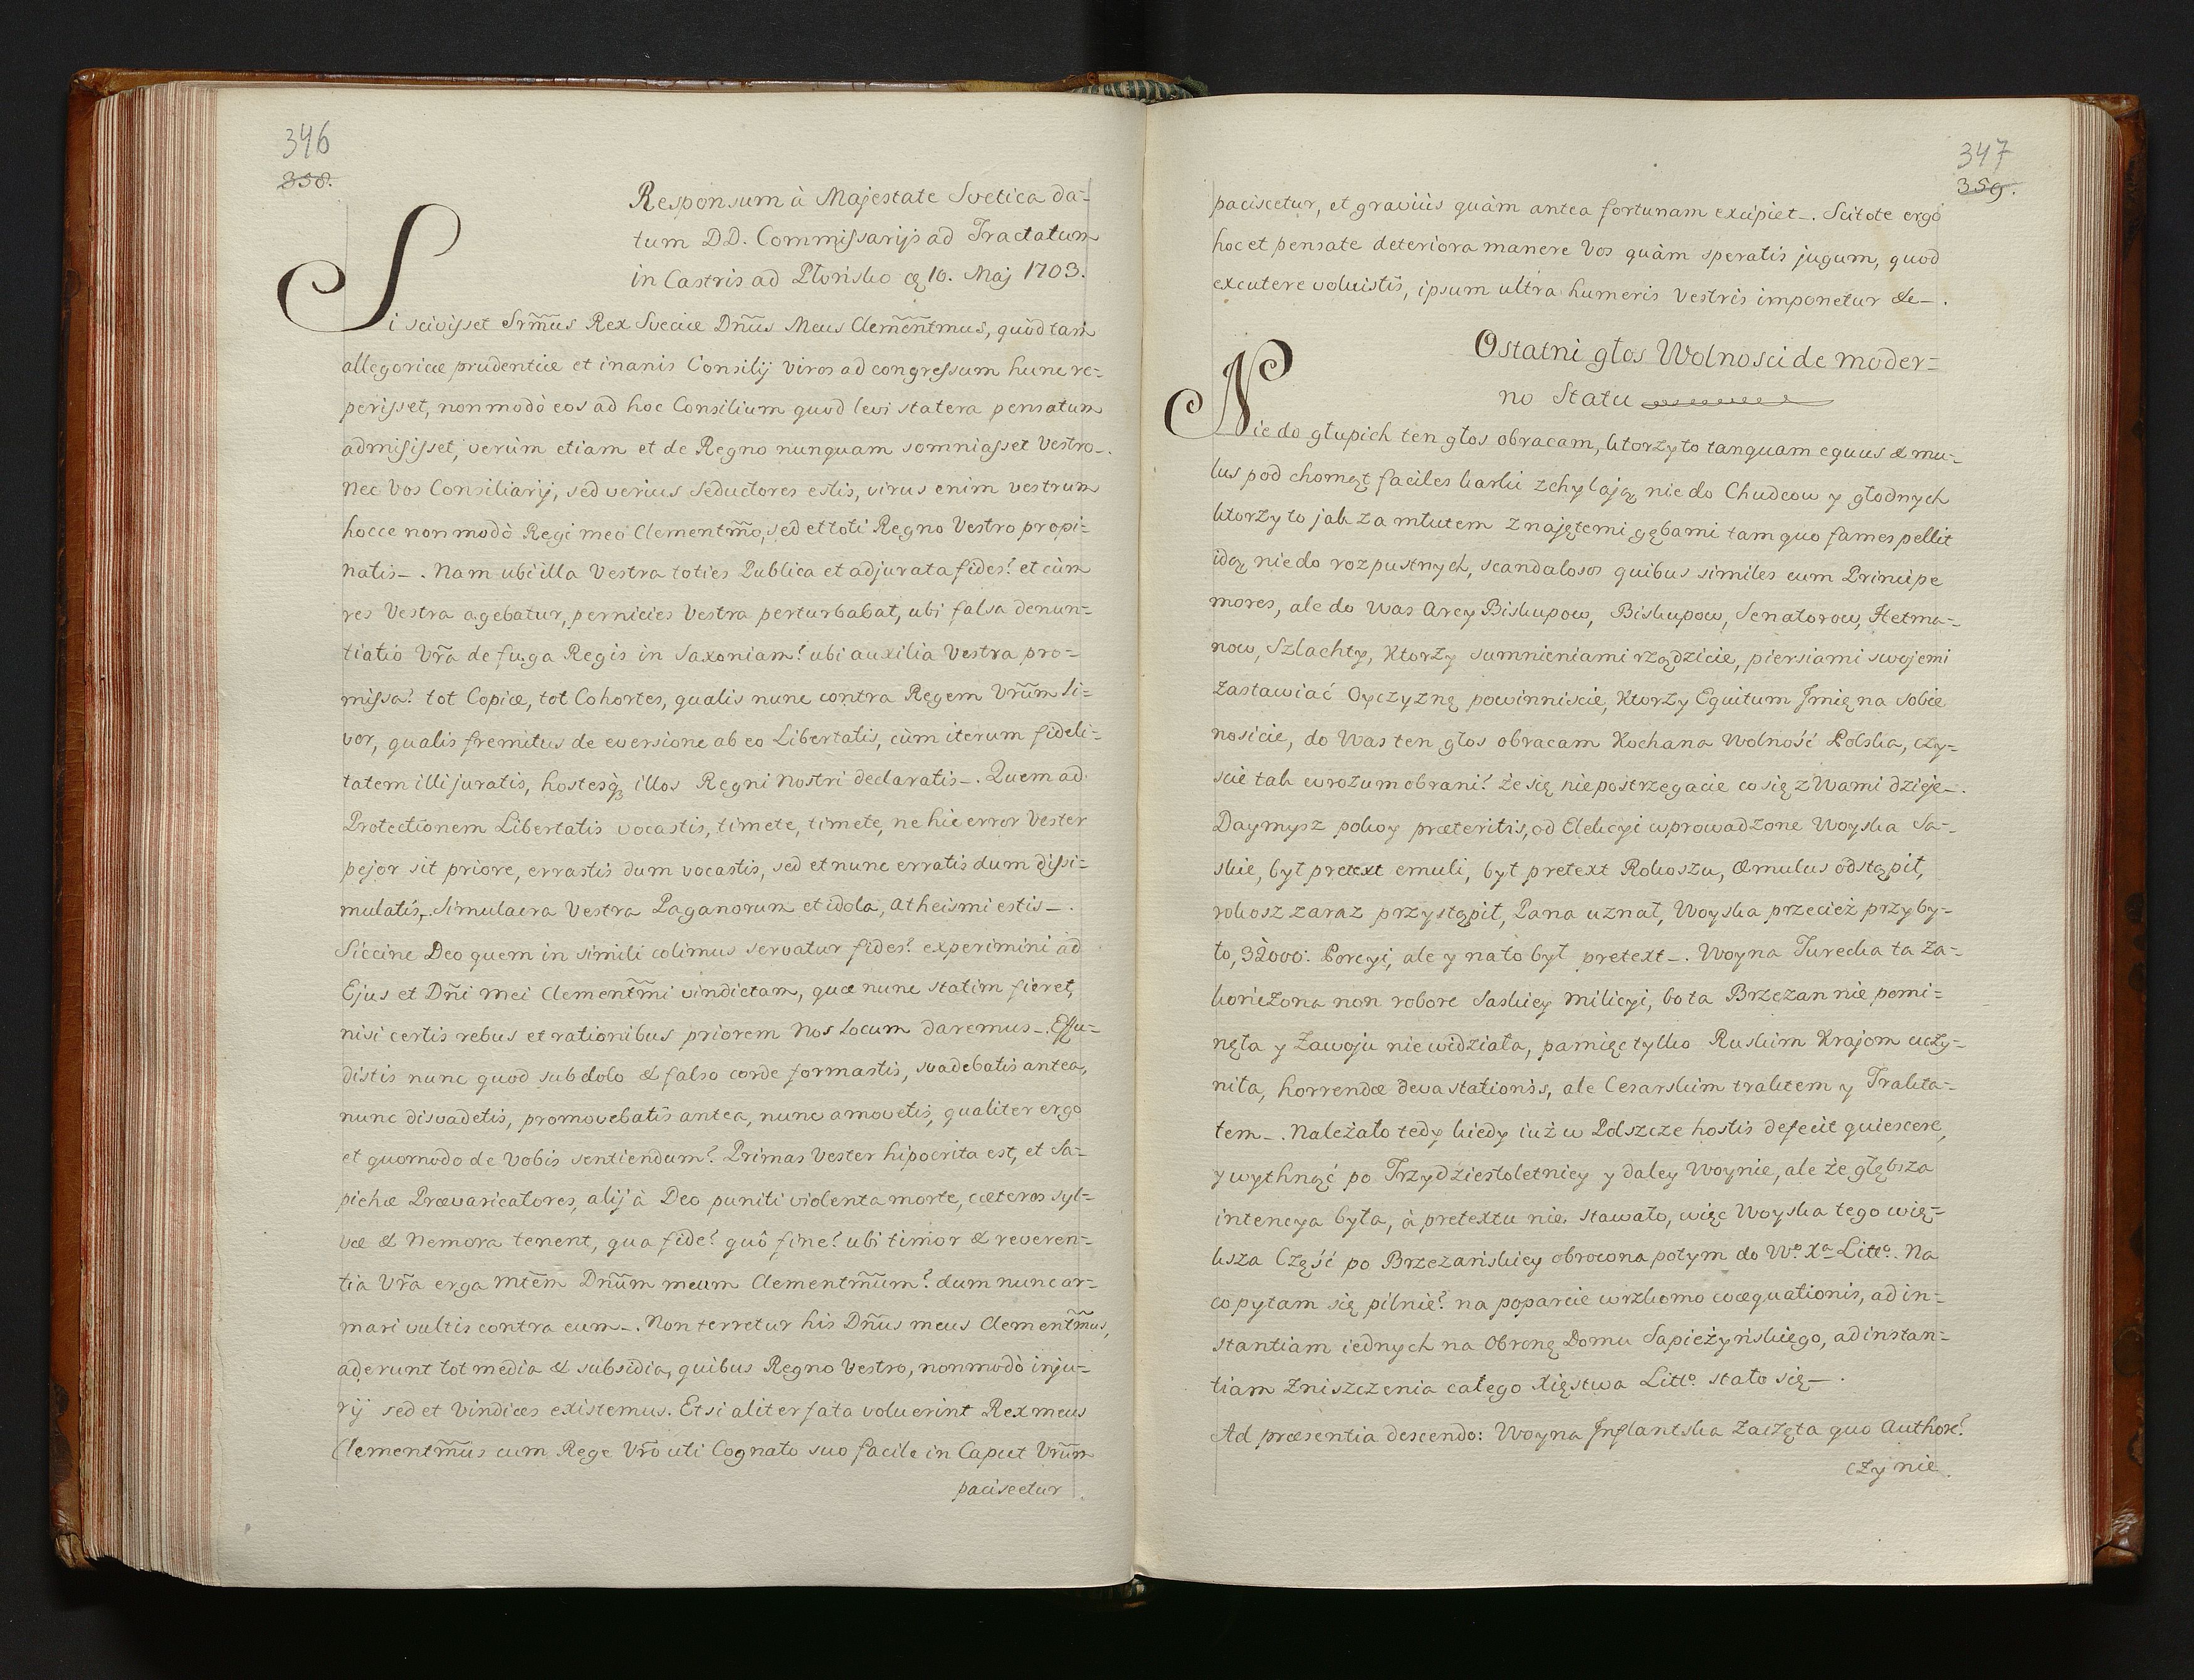 346
358.
Responsum à Majestate Svetica da=
tum DD. Commissarijs ad Tractatum
in Castris ad Płońsko 10. Maj 1703.
Si scivisset Srm̃us Rex Sveciæ Dñus Meus Clemeñtmus, quòd tam
allegoricæ prudentiæ et inanis Consilij viros ad congressum hunc re=
perisset, non modò eos ad hoc Consilium quod levi statera pensatum
admisisset, verùm etiam et de Regno nunquam somniasset Vestro_.
Nec Vos Consiliarij, sed verius Seductores estis, virus enim vestrum
hocce non modò Regi meo Clementm̃o, sed et toti Regno Vestro propi=
natis_. Nam ubi illa Vestra toties Publica et adjurata fides? et cùm
res Vestra agebatur, pernicies Vestra perturbabat, ubi falsa denun=
tiatio Vr̃a de fuga Regis in Saxoniam? ubi auxilia Vestra pro=
missa? tot Copiæ, tot Cohortes, qualis nunc contra Regem Vrũm li=
vor, qualis fremitus de eversione ab eo Libertatis, cùm iterum fideli=
tatem illi juratis, hostesq3 illos Regni Nostri declaratis_. Quem ad
Protectionem Libertatis vocastis, timete, timete, ne hic error Vester
pejor sit priore, errastis dum vocastis, sed et nunc erratis dum dissi=
mulatis, Simulacra Vestra Paganorum et idola, atheismi estis_.
Siccine Deo quem in simili colimus servatur fides? experimini ad
Ejus et Dñi mei Clementm̃i vindictam, quæ nunc statim fieret,
nisi certis rebus et rationibus priorem Nos Locum daremus_. Effu=
distis nunc quod sub dolo & falso corde formastis, suadebatis antea,
nunc disuadetis, promovebatis antea, nunc amovetis, qualiter ergo
et quomodo de Vobis sentiendum? Primas Vester hipocrita est, et Sa=
pichæ Prævaricatores, alij à Deo puniti violenta morte, cæteros syl=
væ & Nemora tenent, qua fide? quô fine? ubi timor & reveren=
tia Vr̃a erga Mtẽm Dnũm meum Clementm̃um? dum nunc ar=
mari vultis contra eum_. Non terretur his Dñus meus Clementm̃us,
aderunt tot media & subsidia, quibus Regno Vestro, non modò inju=
rij sed et Vindices existemus. Etsi aliter fata voluerint Rex meus
Clementm̃us cum Rege Vrõ uti Cognato suo facile in Caput Vrũm
paciscetur
347
359.
paciscetur, et graviùs quàm antea fortunam excipiet_. Scitote ergo
hoc et pensate deteriora manere Vos quàm speratis jugum, quod
excutere voluistis, ipsum ultra humeris Vestris imponetur &c_.
Ostatni głos Wolnosci de moder=
no Statu
Nie do głupich ten głos obracam, ktorzy to tanquam equus & mu=
lus pod chomąt faciles karki zchylają, nie do Chudcow y głodnych
ktorzy to jak za mlutem z najętemi gębami tam quo fames pellit
idą, nie do rozpustnych, scandalosos quibus similes cum Principe
mores, ale do Was Arcy Biskupow, Biskupow, Senatorow, Hetma=
now, Szlachty, Ktorzy sumnieniami rządzicie, piersiami swojemi
zastawiać Oyczyznę powinniscie, Ktorzy Equitum Imię na Sobie
nosicie, do Was ten głos obracam Kochana Wolność Polska, czy=
scie tak w rozum obrani? że się nie postrzegacie co się z Wami dzieje_.
Daymysz pokoy præteritis, od Elekcyi wprowadzone Woyska Sa=
skie, był pretext emuli, był pretext Rokoszu, Æmulus odstąpił,
rokosz zaraz przystąpił, Pana uznał, Woyska przecież przyby=
ło, 32000. Porcyi, ale y na to był pretext_. Woyna Turecka ta za=
kończona non robore Saskiey Milicyi, bo ta Brzezan nie pomi=
nęła y Zawoju nie widziała, pamięc tylko Ruskim Krajom uczy=
niła, horrendæ devastationis, ale Cesarskim traktem y Trakta=
tem_. Należało tedy kiedy iuż w Polszcze hostis defecit quiescere,
y wytknąć po Trzydziestoletniey y daley Woynie, ale że głębsza
intencya była, à pretextu nie stawało, więc Woyska tego wię=
ksza Część po Brzezańskiey obrocona potym do Wo. Xa Litto. Na
co pytam się pilnie? na poparcie wrzkomo coæquationis, ad in=
stantiam iednych na Obronę Domu Sapieżyńskiego, ad instan=
tiam Zniszczenia całego Xięstwa Litto. stało się_.
Ad præsentia descendo: Woyna Inflantska Zaczęta quo Authore?
czy nie